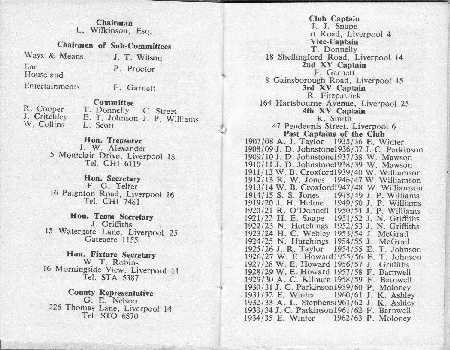 Chairman
L. Wilkinson, Esq.
Chairmen of Sub-Committees
Ways & Means J. T. Wilson
Bar P. Proctor
House and
Entertainments F. Garnett
Committee
R. Cooper T. Donnelly C. Street
J. Critchley E. T. Johnson J. P. Williams
W. Collins L. Scott
Hon. Treasurer
J. W. Alexander
5 Montclair Drive, Liverpool 18
Tel. CHI 6119
Hon. Secretary
F. G. Telfer
16 Paignton Road, Liverpool 16
Tel. CHI 7481
Hon. Team Secretary
J. Griffiths
15 Watergate Lane, Liverpool 25
Gateacre 1155
Hon. Fixture Secretary
W. T. Robins
16 Morningside View, Liverpool 11
Tel. STA 5387
County Representative
G. E. Nelson
226 Thomas Lane, Liverpool 14
Tel. STO 6570
Club Captain
J. J. Snape
Road, Liverpool 4
Vice-Captain
T. Donnelly
18 Shellingford Road, Liverpool 14
2nd XV Captain
F. Garnett
8 Gainsborough Road, Liverpool 15
3rd XV Captain
R. Fitzpatrick
164 Hartsbourne Avenue, Liverpool 25
4th XV Captain
K. Smith
47 Pendennis Street, Liverpool 6
Past Captains of the Club
1907/08 A. J. Taylor 1935/36 E. Winter
1908/09 J. D. Johnstone 1936/37 J. C. Parkinson
1909/10 J. D. Johnstone 1937/38 W. Mawson
1910/11 J. D. Johnstone 1938/39 W. Mawson
1911/12 W. B. Croxford 1939/40 W. Williamson
1912/13 R. W. Jones 1946/47 W. Williamson
1913/14 W. B. Croxford 1947/48 W. Williamson
1914/15 S. S. Jones 1948/49 J. P. Williams
1919/20 J. H. Hulme 1949/50 J. P. Williams
1920/21 R. O'Donnell 1950/51 J. P. Williams
1921/22 H. E. Snape 1951/52 J. N. Griffiths
1922/23 N. Hutchings 1952/53 J. N. Griffiths
1923/24 H. C. Webley 1953/54 J. McGrail
1924/25 N. Hutchings 1954/55 J. McGrail
1925/26 J. R. Taylor 1954/55 E. T. Johnson
1926/27 W. E. Howard 1955/56 E. T. Johnson
1927/28 W. E. Howard 1956/57 J. Griffiths
1928/29 W. E. Howard 1957/58 F. Barnwell
1929/30 A. C. Kilburn 1958/59 F. Barnwell
1930/31 J. C. Parkinson 1959/60 P. Moloney
1931/32 E. Winter 1960/61 J. K. Ashley
1932/33 A. L. Stephens 1961/62 J. K. Ashley
1933/34 J. C. Parkinson 1961/62 F. Barnwell
1934/35 E. Winter 1962/63 P. Moloney